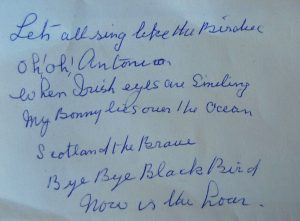 Lets all sing like the Birdies
Oh! Oh! Antonio
When Irish eyes are Smiling
My Bonny lies over the Ocean
Scotland the Brave
Bye Bye Black Bird
Now is the hour.